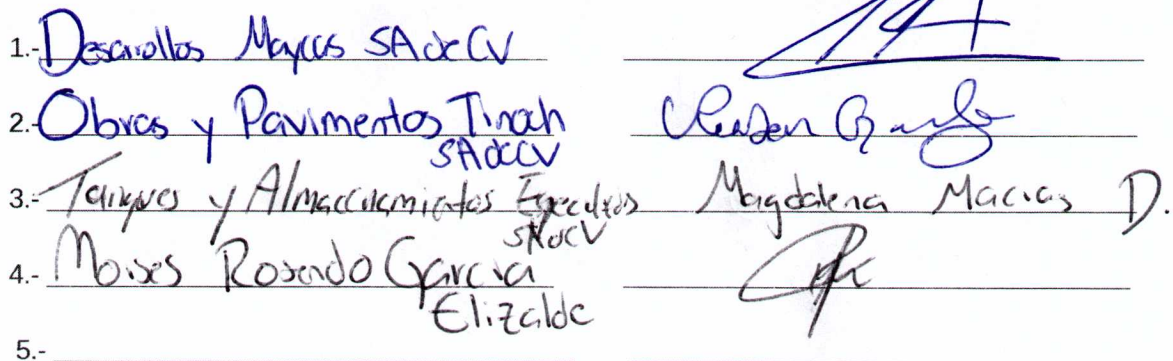 1.- Desarollos Maycas SA de CV
2.- Obras y Pavimentos Tinah
SA de CV
3.- Tanques y Almacenamientos Magdalena Macias D.
SA de CV
4.- Moises Rosendo Garcia
Elizalde
5.-